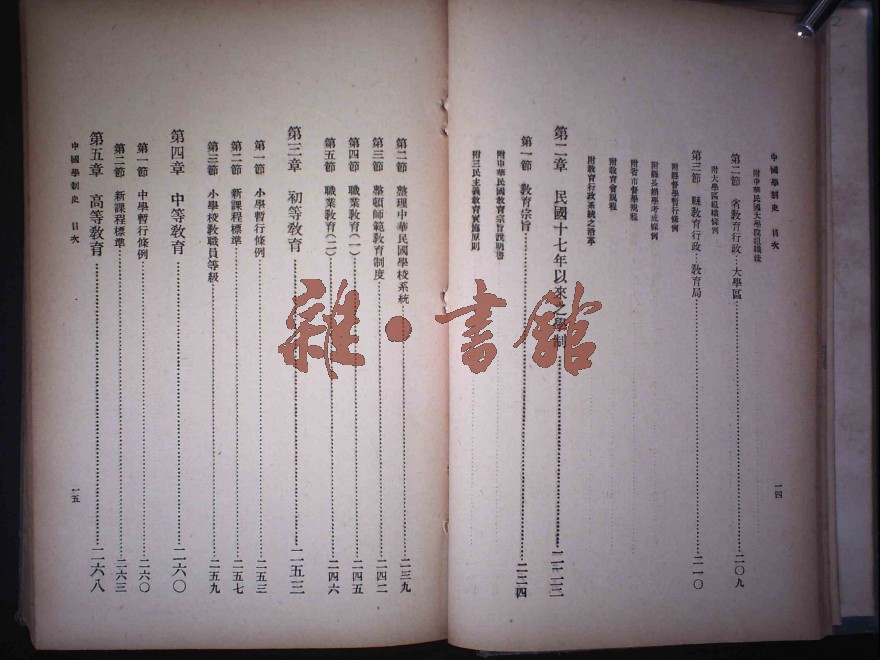 中國學制史 目次
附中華民國大學院組織法
第二節 省教育行政·大學區……二〇九
附大學區組織條例
第三節 縣教育行政·教育局……二一〇
附縣督學暫行條例
附縣長辦學考成條例
附省市督學規程
附教育會規程
附教育行政系統之沿革
第二章 民國十七年以來之學制……二二三
第一節 教育宗旨……二二四
附中華民國教育宗旨說明書
附三民主義教育實施原則
一四
第二節 整理中華民國學校系統……二三九
第三節 整頓師範教育制度……二四二
第四節 職業教育(一)……二四五
第五節 職業教育(二)……二四六
第三章 初等教育……二五三
第一節 小學暫行條例……二五三
第二節 新課程標準……二五七
第三節 小學校教職員等級……二五九
第四章 中等教育……二六〇
第一節 中學暫行條例……二六〇
第二節 新課程標準……二六三
第五章 高等教育……二六八
中國學制史 目次
一五
雜·書館